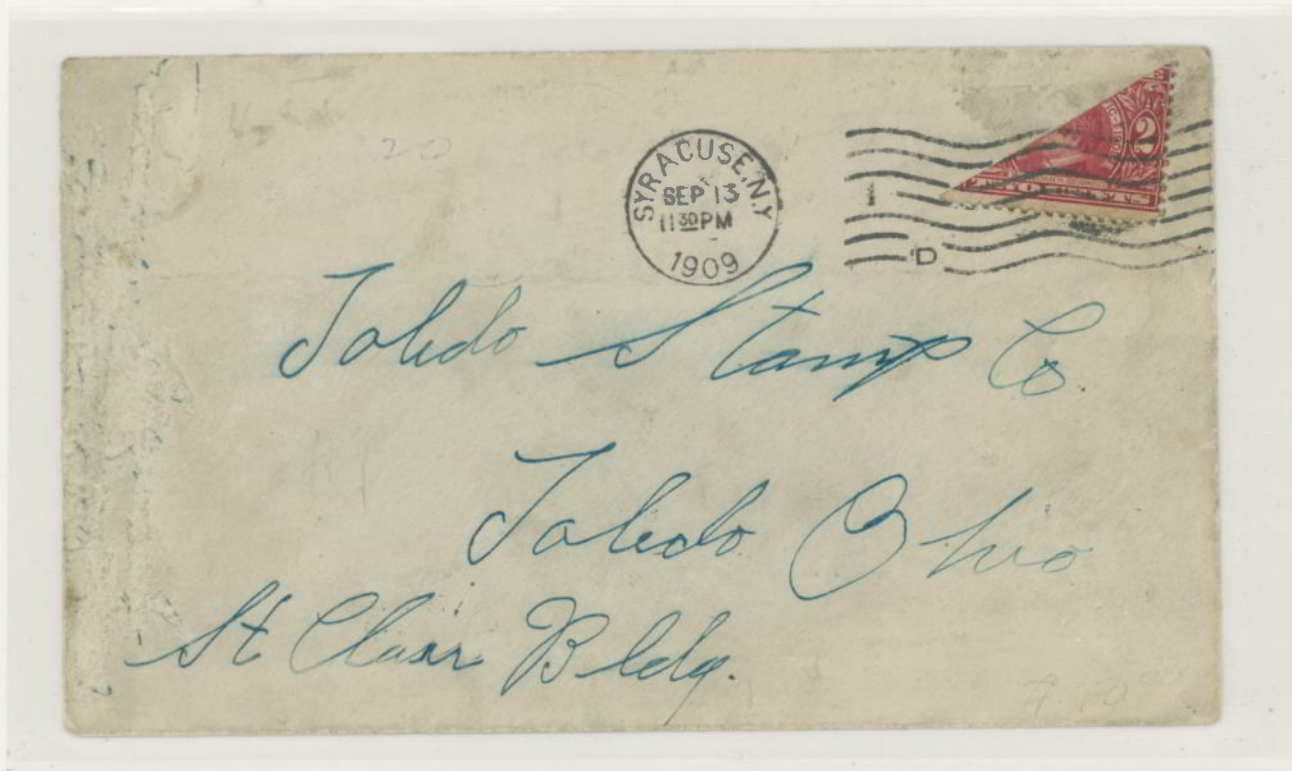 20
SYRACUSE, N.Y.
SEP 13
11 30 PM
1909
1
D
2
Toledo Stamp Co
Toledo Ohio
St Clair Bldg.